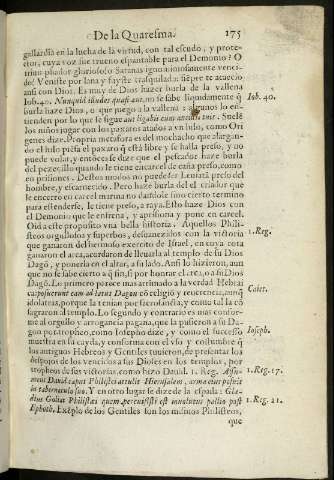 De la Quaresma. 175
gallardia en la lucha de la virtud, con tal escudo, y prote-
ctor, cuya voz fue trueno espantable para el Demonio? O
triunfador glorioso! o Satanas
de! Veniste por lana y fuyste trasquilada: siẽpre te acaecio
ansi con Dios. Es muy de Dios hazer burla de la vallena
Iob.40. Nunquid illudes quasi aui. no se sabe liquidamente q̃
burla haze Dios, o que juego a la vallena: algunos lo en-
tienden por lo que se sigue aut ligabis eum ancillis tuis. Suelẽ
los niños jugar con los paxaros atados a vn hilo, como Ori
genes dize. Propria metafora es del mochacho que alargan-
do el hilo piẽsa el paxaro q̃ está libre y se halla preso, y no
puede volar, y entõces se dize que el pescador haze burla
del pezer, quando le tiene en carcel de caña preso, como
en prisiones. Destos modos no puede ser Leuiatã preso del
hombre, y escarnecido. Pero haze burla del el criador que
le encerro en carcel marina no dandole sino cierto termino
para estenderse, le tiene preso, a raya. Esto haze Dios con
el Demonio que le enfrena, y aprisiona y pone en carcel.
Oid a este proposito vna bella historia. Aquellos Phili-
steos orgullosos y superbos, desuanecidos con la victoria
que ganaron del hermoso exercito de Israel, en cuya rota
ganaron el arca, acordaron de lleuarla al templo de su Dios
Dagõ, y ponerla en el altar, a su lado. Ansi lo hizieron, aun
que no se sabe cierto a q̃ fin, si por honrar el arca, o a su Dios
Dagõ. Lo primero parece mas arrimado a la verdad Hebrai
ca: posuerunt eam ad latus Dagon cõ religiõ y reuerencia, aunq̃
idolatras, porque la tenian por
sagraron al templo. Lo segundo y contrario es mas confor-
me al orgullo y arrogancia pagana, que la pusieron a su Da-
gon por tropico, como Iosepho dize, y como el successo,
muestra en la cayda, y conforma con el vso y costumbre q̃
los antiguos Hebreos y Gentiles tuuieron, de presentar los
despojos de los vencidos a sus Dioses en los templos, por
tropheos de sus victorias, como hizo Dauid. 1. Reg. Assu-
mens Dauid caput Philistei attulit Hierusalem, arma eius posuit
in tabernaculo suo. Y en otro lugar se dize de la espada: Gla-
dius Goliat Philistei quem percussisti est inuolutus pallio post
Ephoth. Exẽplo de los Gentiles son los mismos Philisteos,
que
Iob. 40.
1. Reg.
Caiet.
Ioseph.
1. Reg. 17.
1. Reg. 21.